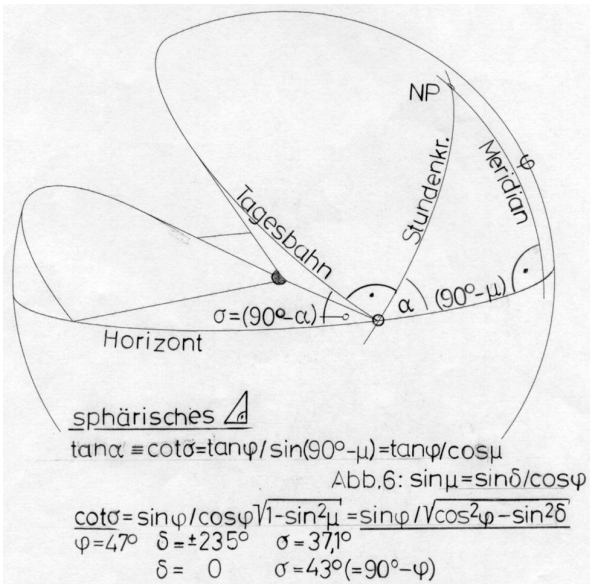 NP
φ
Meridian
Stundenkr.
Tagesbahn
σ=(90°-α)
α
(90°-μ)
Horizont
sphärisches
tanα≡cotσ=tanφ/sin(90°-μ)=tanφ/cosμ
Abb.6: sinμ=sinδ/cosφ
cotσ=sinφ/cosφ√1-sin²μ=sinφ/√cos²φ-sin²δ
φ=47° δ=±23.5° σ=37,1°
δ= 0 σ=43°(=90°-φ)